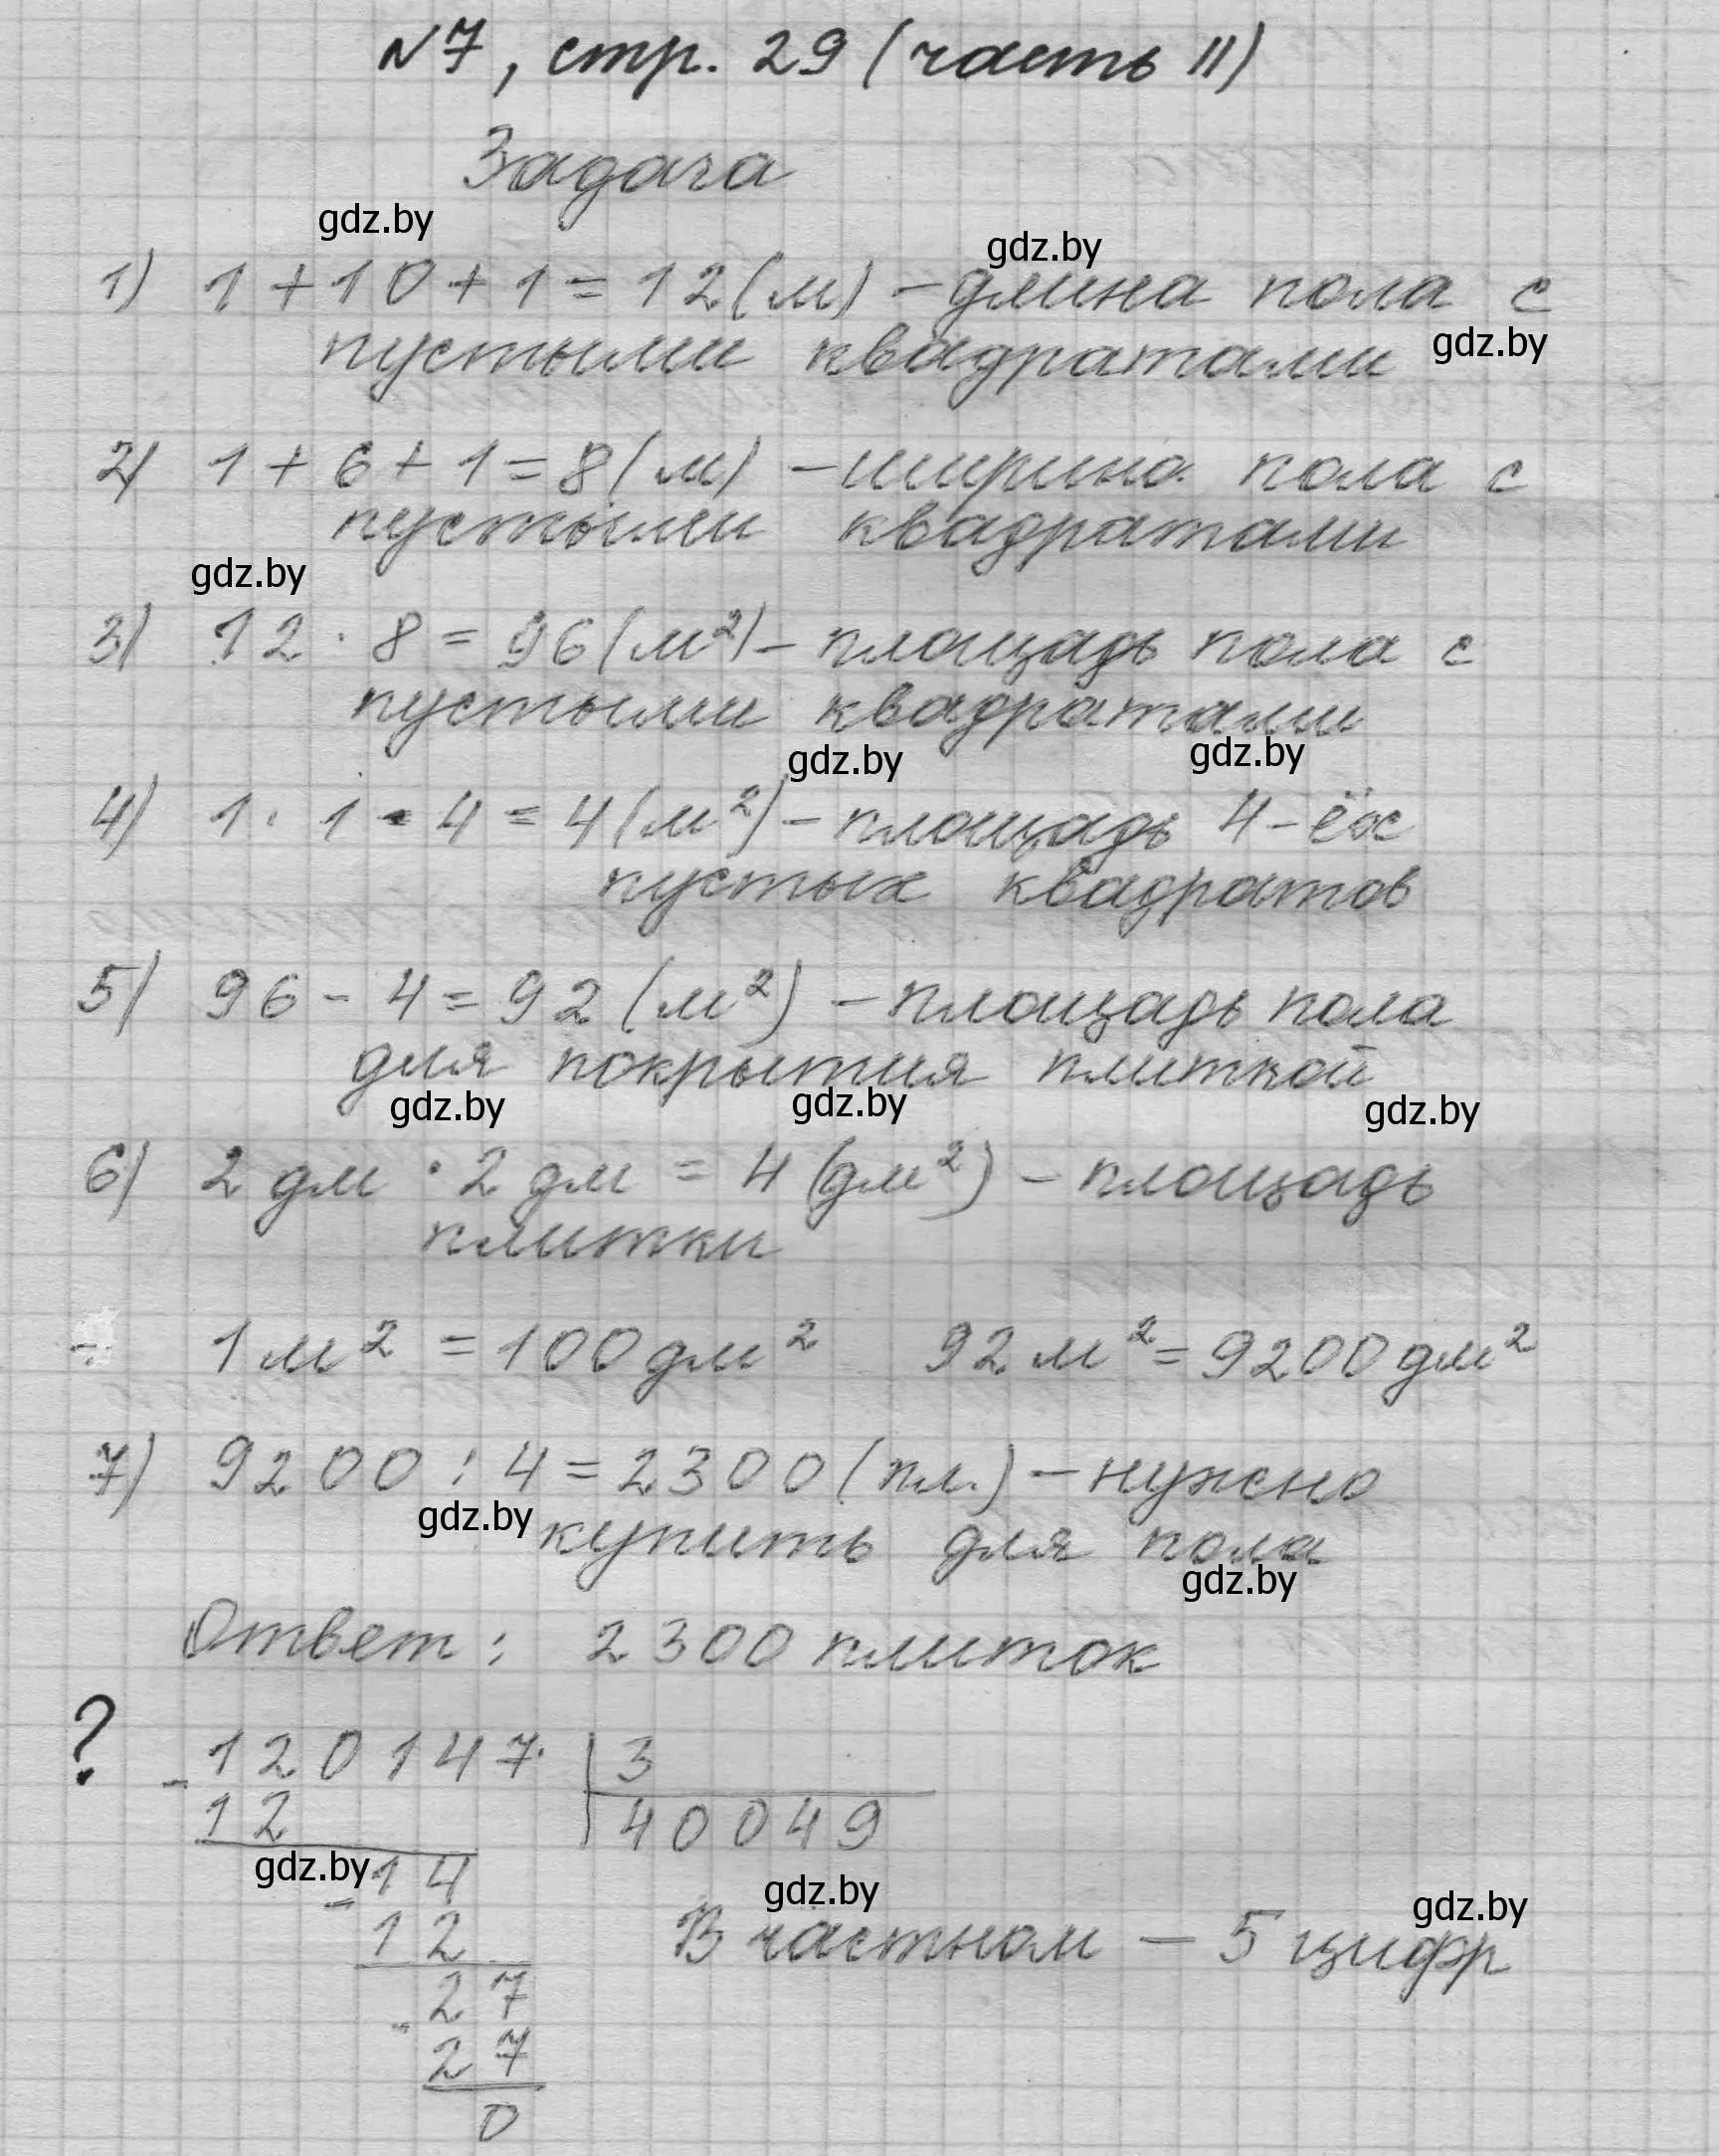 №7, стр. 29 (часть II)
Задача
gdz.by
gdz.by
1) 1 + 10 + 1 = 12 (м) - длина пола с
пустыми квадратами gdz.by
2) 1 + 6 + 1 = 8 (м) - ширина пола с
пустыми квадратами
gdz.by
3) 12 · 8 = 96 (м²) - площадь пола с
пустыми квадратами
gdz.by gdz.by
4) 1 · 1 · 4 = 4 (м²) - площадь 4-ёх
пустых квадратов
5) 96 - 4 = 92 (м²) - площадь пола
для покрытия плиткой
gdz.by gdz.by gdz.by
6) 2 дм · 2 дм = 4 (дм²) - площадь
плитки
1 м² = 100 дм² 92 м² = 9200 дм²
7) 9200 : 4 = 2300 (пл.) - нужно
gdz.by купить для пола
gdz.by
Ответ: 2300 плиток
? - 120147 | 3
12 40049
gdz.by - 14 gdz.by gdz.by
12 В частном - 5 цифр
- 27
27
0